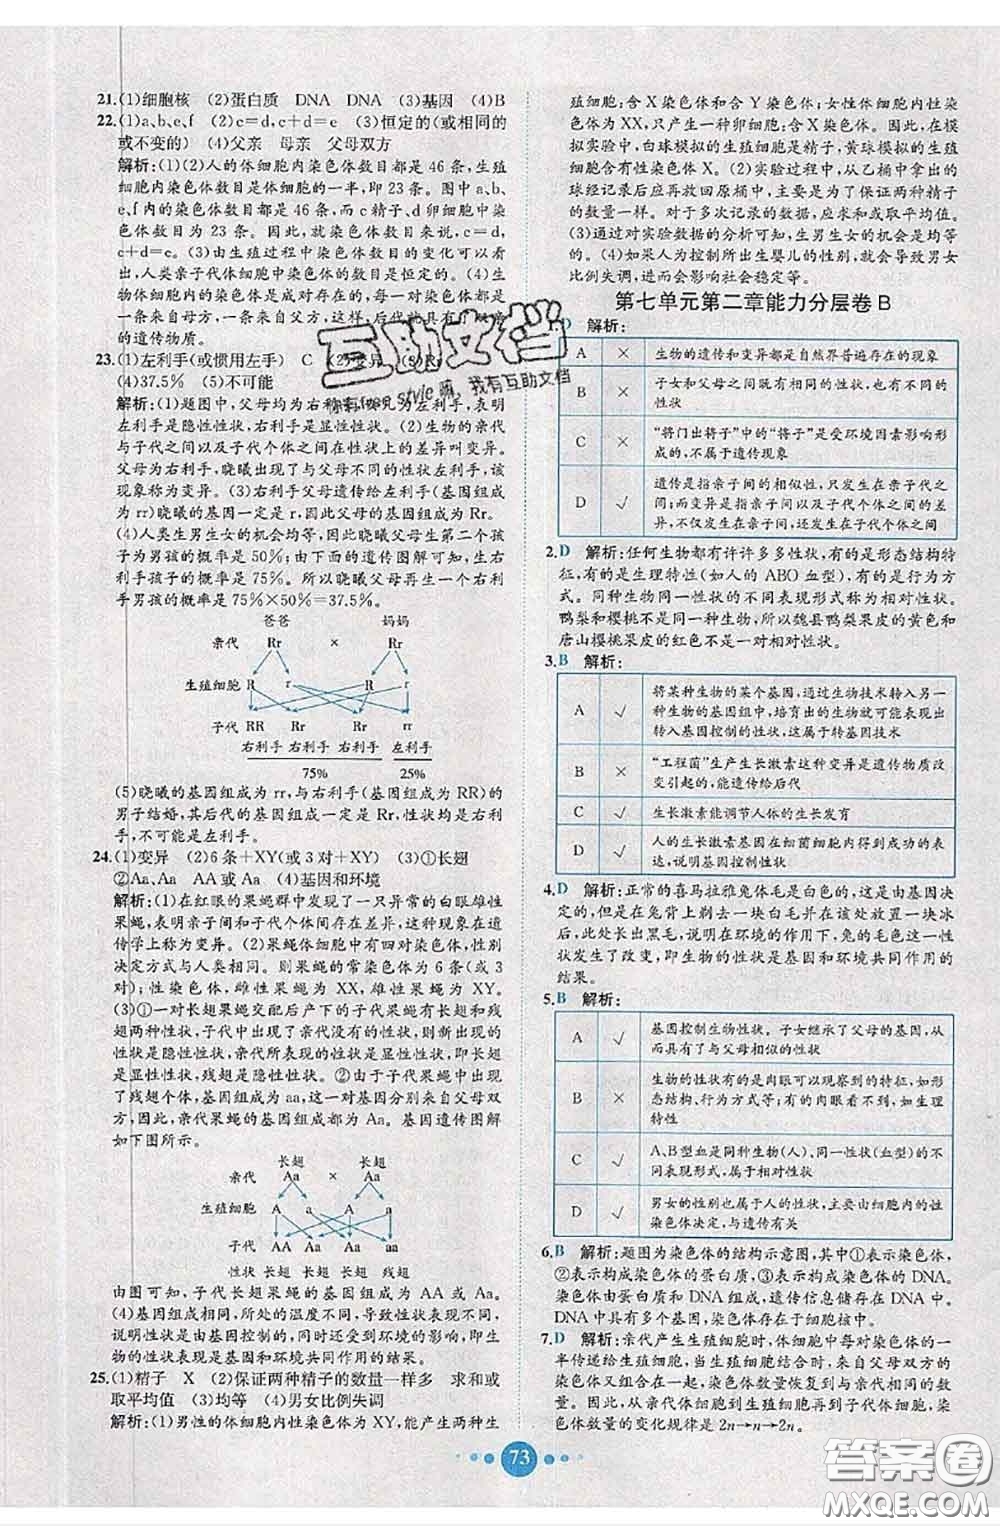 21.(1)细胞核 (2)蛋白质 DNA DNA (3)基因 (4)B
22.(1)a、b、e、f (2)c=d,c+d=e (3)恒定的(或相同的
或不变的) (4)父亲 母亲 父母双方
解析:(1)(2)人的体细胞内染色体数目都是 46 条,生殖
细胞内染色体数目是体细胞的一半,即 23 条。图中 a、b、
e、f 内的染色体数目都是 46 条,而 c 精子、d 卵细胞中染
色体数目为 23 条。因此,就染色体数目来说,c=d,
c+d=e。(3)由生殖过程中染色体数目的变化可以看
出,人类亲子代体细胞中染色体的数目是恒定的。(4)生
物体细胞中的染色体是成对存在的,每对染色体中,一条
来自母方,一条来自父方,这样,后代就具有了
的遗传物质。
23.(1)左利手(或惯用左手) C (2)变异 (3)Rr
(4)37.5% (5)不可能
解析:(1)题图中,父母均为右利手,
左利手是隐性性状,右利手是显性性状。(2)生物的亲代
与子代之间以及子代个体之间在性状上的差异叫变异。
父母为右利手,晓曦出现了与父母不同的性状左利手,该
现象称为变异。(3)右利手父母遗传给左利手(基因组成
为 rr)晓曦的基因一定是 r,因此父母的基因组成为 Rr。
(4)人类生男生女的机会均等,因此晓曦父母再生第二个孩
子为男孩的概率是 50%;由下面的遗传图解可知,生右
利手孩子的概率是 75%。所以晓曦父母再生一个右利
手男孩的概率是 75%×50%=37.5%。
爸爸 妈妈
亲代 Rr × Rr
生殖细胞 R r R r
子代 RR Rr Rr rr
右利手 右利手 右利手 左利手
75% 25%
(5)晓曦的基因组成为 rr,与右利手(基因组成为 RR)的
男子结婚,其后代的基因组成一定是 Rr,性状均是右利
手,不可能是左利手。
24.(1)变异 (2)6 条+XY(或 3 对+XY) (3)①长翅
②Aa、Aa AA 或 Aa (4)基因和环境
解析:(1)在红眼的果蝇群中发现了一只异常的白眼雄性
果蝇,表明亲子间和子代个体间存在差异,这种现象在遗
传学上称为变异。(2)果蝇体细胞中有四对染色体,性别
决定方式与人类相同。则果蝇的常染色体为 6 条(或 3
对),性染色体,雌性果蝇为 XX,雄性果蝇为 XY。
(3)①一对长翅果蝇交配后产下的子代果蝇有长翅和残
翅两种性状,子代中出现了亲代没有的性状,则新出现的
性状是隐性性状,亲代所表现的性状是显性性状,即长翅
是显性性状,残翅是隐性性状。②由于子代果蝇中出现
了残翅个体,基因组成为 aa,这一对基因分别来自父母双
方,因此,亲代果蝇的基因组成为 Aa。基因遗传图解
如下图所示。
长翅 长翅
亲代 Aa × Aa
生殖细胞 A a A a
子代 AA Aa Aa aa
性状 长翅 长翅 长翅 残翅
由图可知,子代长翅果蝇的基因组成为 AA 或 Aa。
(4)基因组成相同,所处的温度不同,导致性状表现不同,
说明性状是由基因控制的,同时还受到环境的影响,即生
物的性状是基因和环境共同作用的结果。
25.(1)精子 X (2)保证两种精子的数量一样多 求和或
取平均值 (3)均等 (4)男女比例失调
解析:(1)男性的体细胞内性染色体为 XY,能产生两种生
殖细胞:含 X 染色体和含 Y 染色体;女性体细胞内性染
色体为 XX,只产生一种卵细胞:含 X 染色体。因此,在
模拟实验中,白球模拟的生殖细胞是精子,黄球模拟的生殖
细胞含有性染色体 X。(2)实验过程中,从乙桶中拿出的
球经记录后应再放回原桶中,主要是为了保证两种精子
的数量一样。对于多次记录的数据,应求和或取平均值。
(3)通过对实验数据的分析可知,生男生女的机会是均等
的。(4)如果人为控制所出生婴儿的性别,就会导致男女
比例失调,进而会影响社会稳定等。
第七单元第二章能力分层卷 B
1.D 解析:
A × 生物的遗传和变异都是自然界普遍存在的现象
B × 子女和父母之间既有相同的性状,也有不同的
性状
C × “将门出将子”中的“将子”是受环境因素影响形
成的,不属于遗传现象
D √ 遗传是指亲子间的相似性,只发生在亲子代之
间;而变异是指亲子间以及子代个体之间的差
异,不仅发生在亲子间,还发生在子代个体之间
2.D 解析:任何生物都有许许多多性状,有的是形态结构特
征,有的是生理特性(如人的 ABO 血型),有的是行为方
式。同种生物同一性状的不同表现形式称为相对性状。
鸭梨和樱桃不是同一种生物,所以魏县鸭梨果皮的黄色和
唐山樱桃果皮的红色不是一对相对性状。
3.B 解析:
A √ 将某种生物的某个基因,通过生物技术转入另一
种生物的基因组中,培育出的生物就可能表现出
转入基因控制的性状,这属于转基因技术
B × “工程菌”生产生长激素这种变异是遗传物质改
变引起的,能遗传给后代
C √ 生长激素能调节人体的生长发育
D √ 人的生长激素基因在细菌细胞内得到成功的表
达,说明基因控制性状
4.D 解析:正常的喜马拉雅兔体毛是白色的,这是由基因决
定的,但在兔背上剃去一块白毛并在该处放置一块冰
后,此处长出黑毛,说明在环境的作用下,兔的毛色这一性
状发生了改变,即生物的性状是基因和环境共同作用的
结果。
5.B 解析:
A √ 基因控制生物性状。子女继承了父母的基因,从
而具有了与父母相似的性状
B × 生物的性状有的是肉眼可以观察到的特征,如形
态结构、行为特征等;有的肉眼看不到,如生理
特性
C √ A、B 型血是同种生物(人)、同一性状(血型)的不
同表现形式,属于相对性状
D √ 男女的性别也属于人的性状,主要由细胞内的性
染色体决定,与遗传有关
6.B 解析:题图为染色体的结构示意图,其中①表示染色体,
②表示构成染色体的蛋白质,③表示构成染色体的 DNA。
染色体由蛋白质和 DNA 组成,遗传信息储存在 DNA 中。
DNA 中具有多个基因,染色体存在于细胞核中。
7.D 解析:亲代产生生殖细胞时,体细胞中每对染色体的一
半传递给生殖细胞,当受精卵形成时,来自父母双方的染
色体又组合在一起,染色体的数量恢复到与亲代体细胞一
样多,因此,从亲代体细胞到生殖细胞再到子代体细胞,染
色体数量的变化规律是 2n→n→2n。
73
互助文档
我有互助文档
答案圈
MXQE.COM